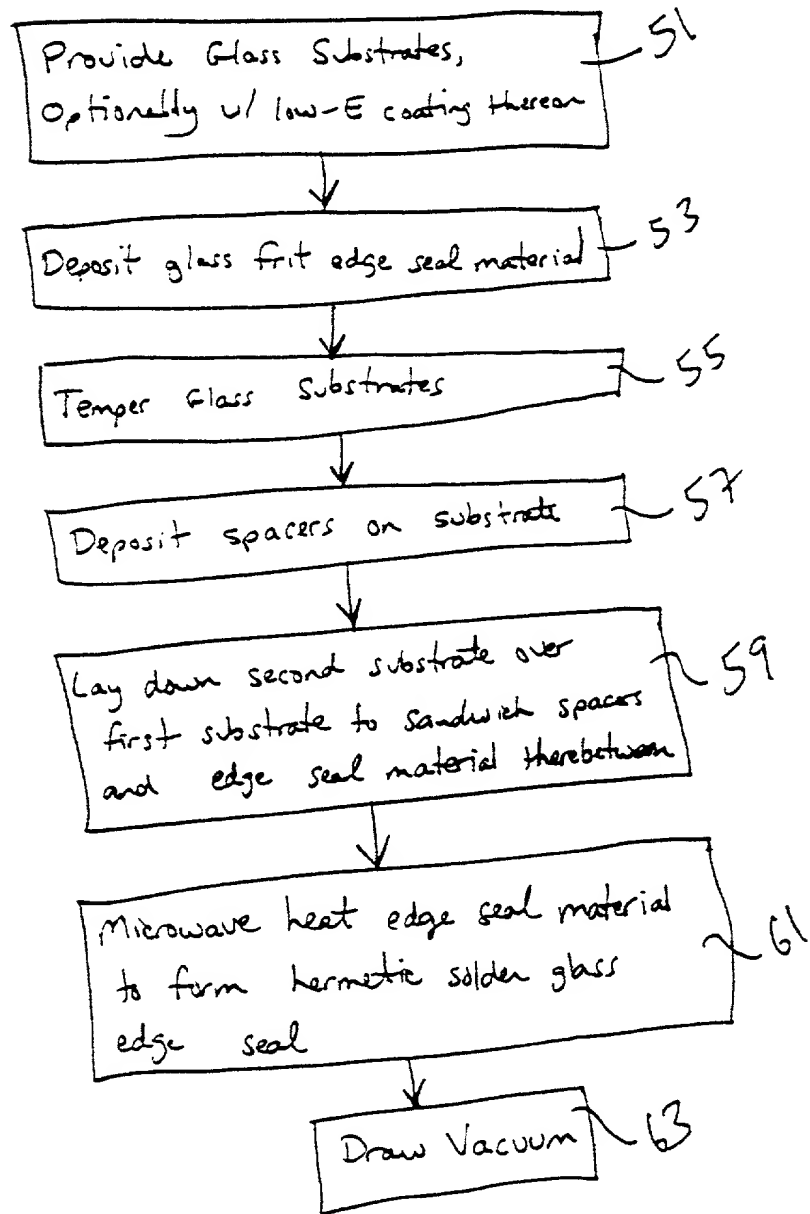 Provide Glass Substrates,
51
Optionally w/ low-E coating thereon
Deposit glass frit edge seal material
53
Temper Glass Substrates
55
Deposit spacers on substrate
57
Lay down second substrate over
59
first substrate to sandwich spaces
and edge seal material therebetween
Microwave heat edge seal material
61
to form hermetic solder glass
edge seal
Draw Vacuum
63